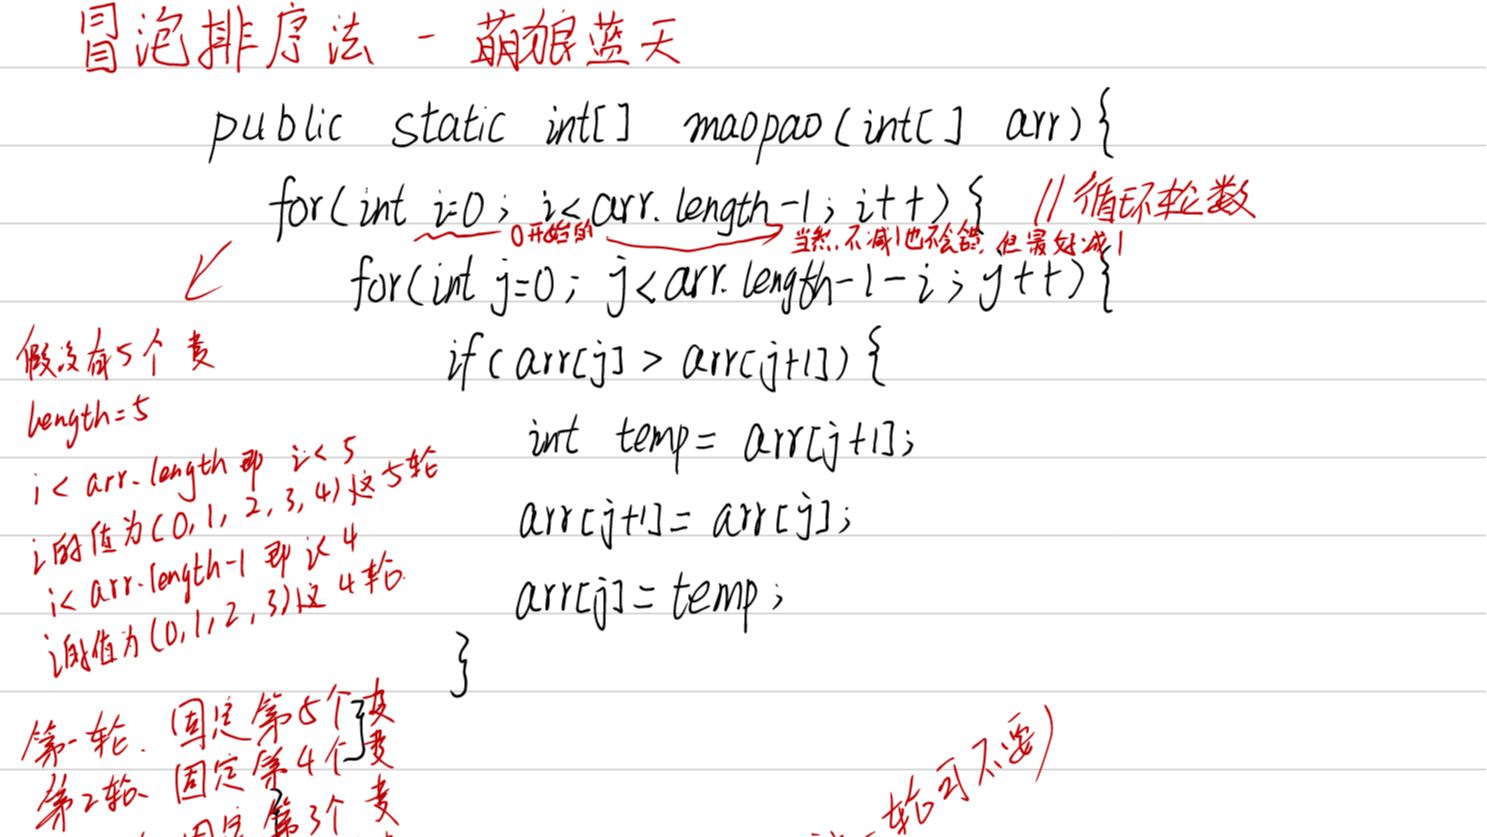 冒泡排序法 - 萌狼蓝天
public static int[] maopao(int[] arr){
for(int i=0; i<arr.length-1; i++){ //循环轮数
0开始的
当然,不减1也不会错,但最好减1
for(int j=0; j<arr.length-1-i; j++){
if(arr[j] > arr[j+1]){
int temp= arr[j+1];
arr[j+1]= arr[j];
arr[j]= temp;
}
}
假设有5个数
length=5
i< arr.length 即 i< 5
i的值为(0,1,2,3,4)这5轮
i< arr.length-1 即 i< 4
i的值为(0,1,2,3)这4轮.
第一轮、固定第5个数
第2轮、固定第4个数
固定第3个数
一轮可不要)